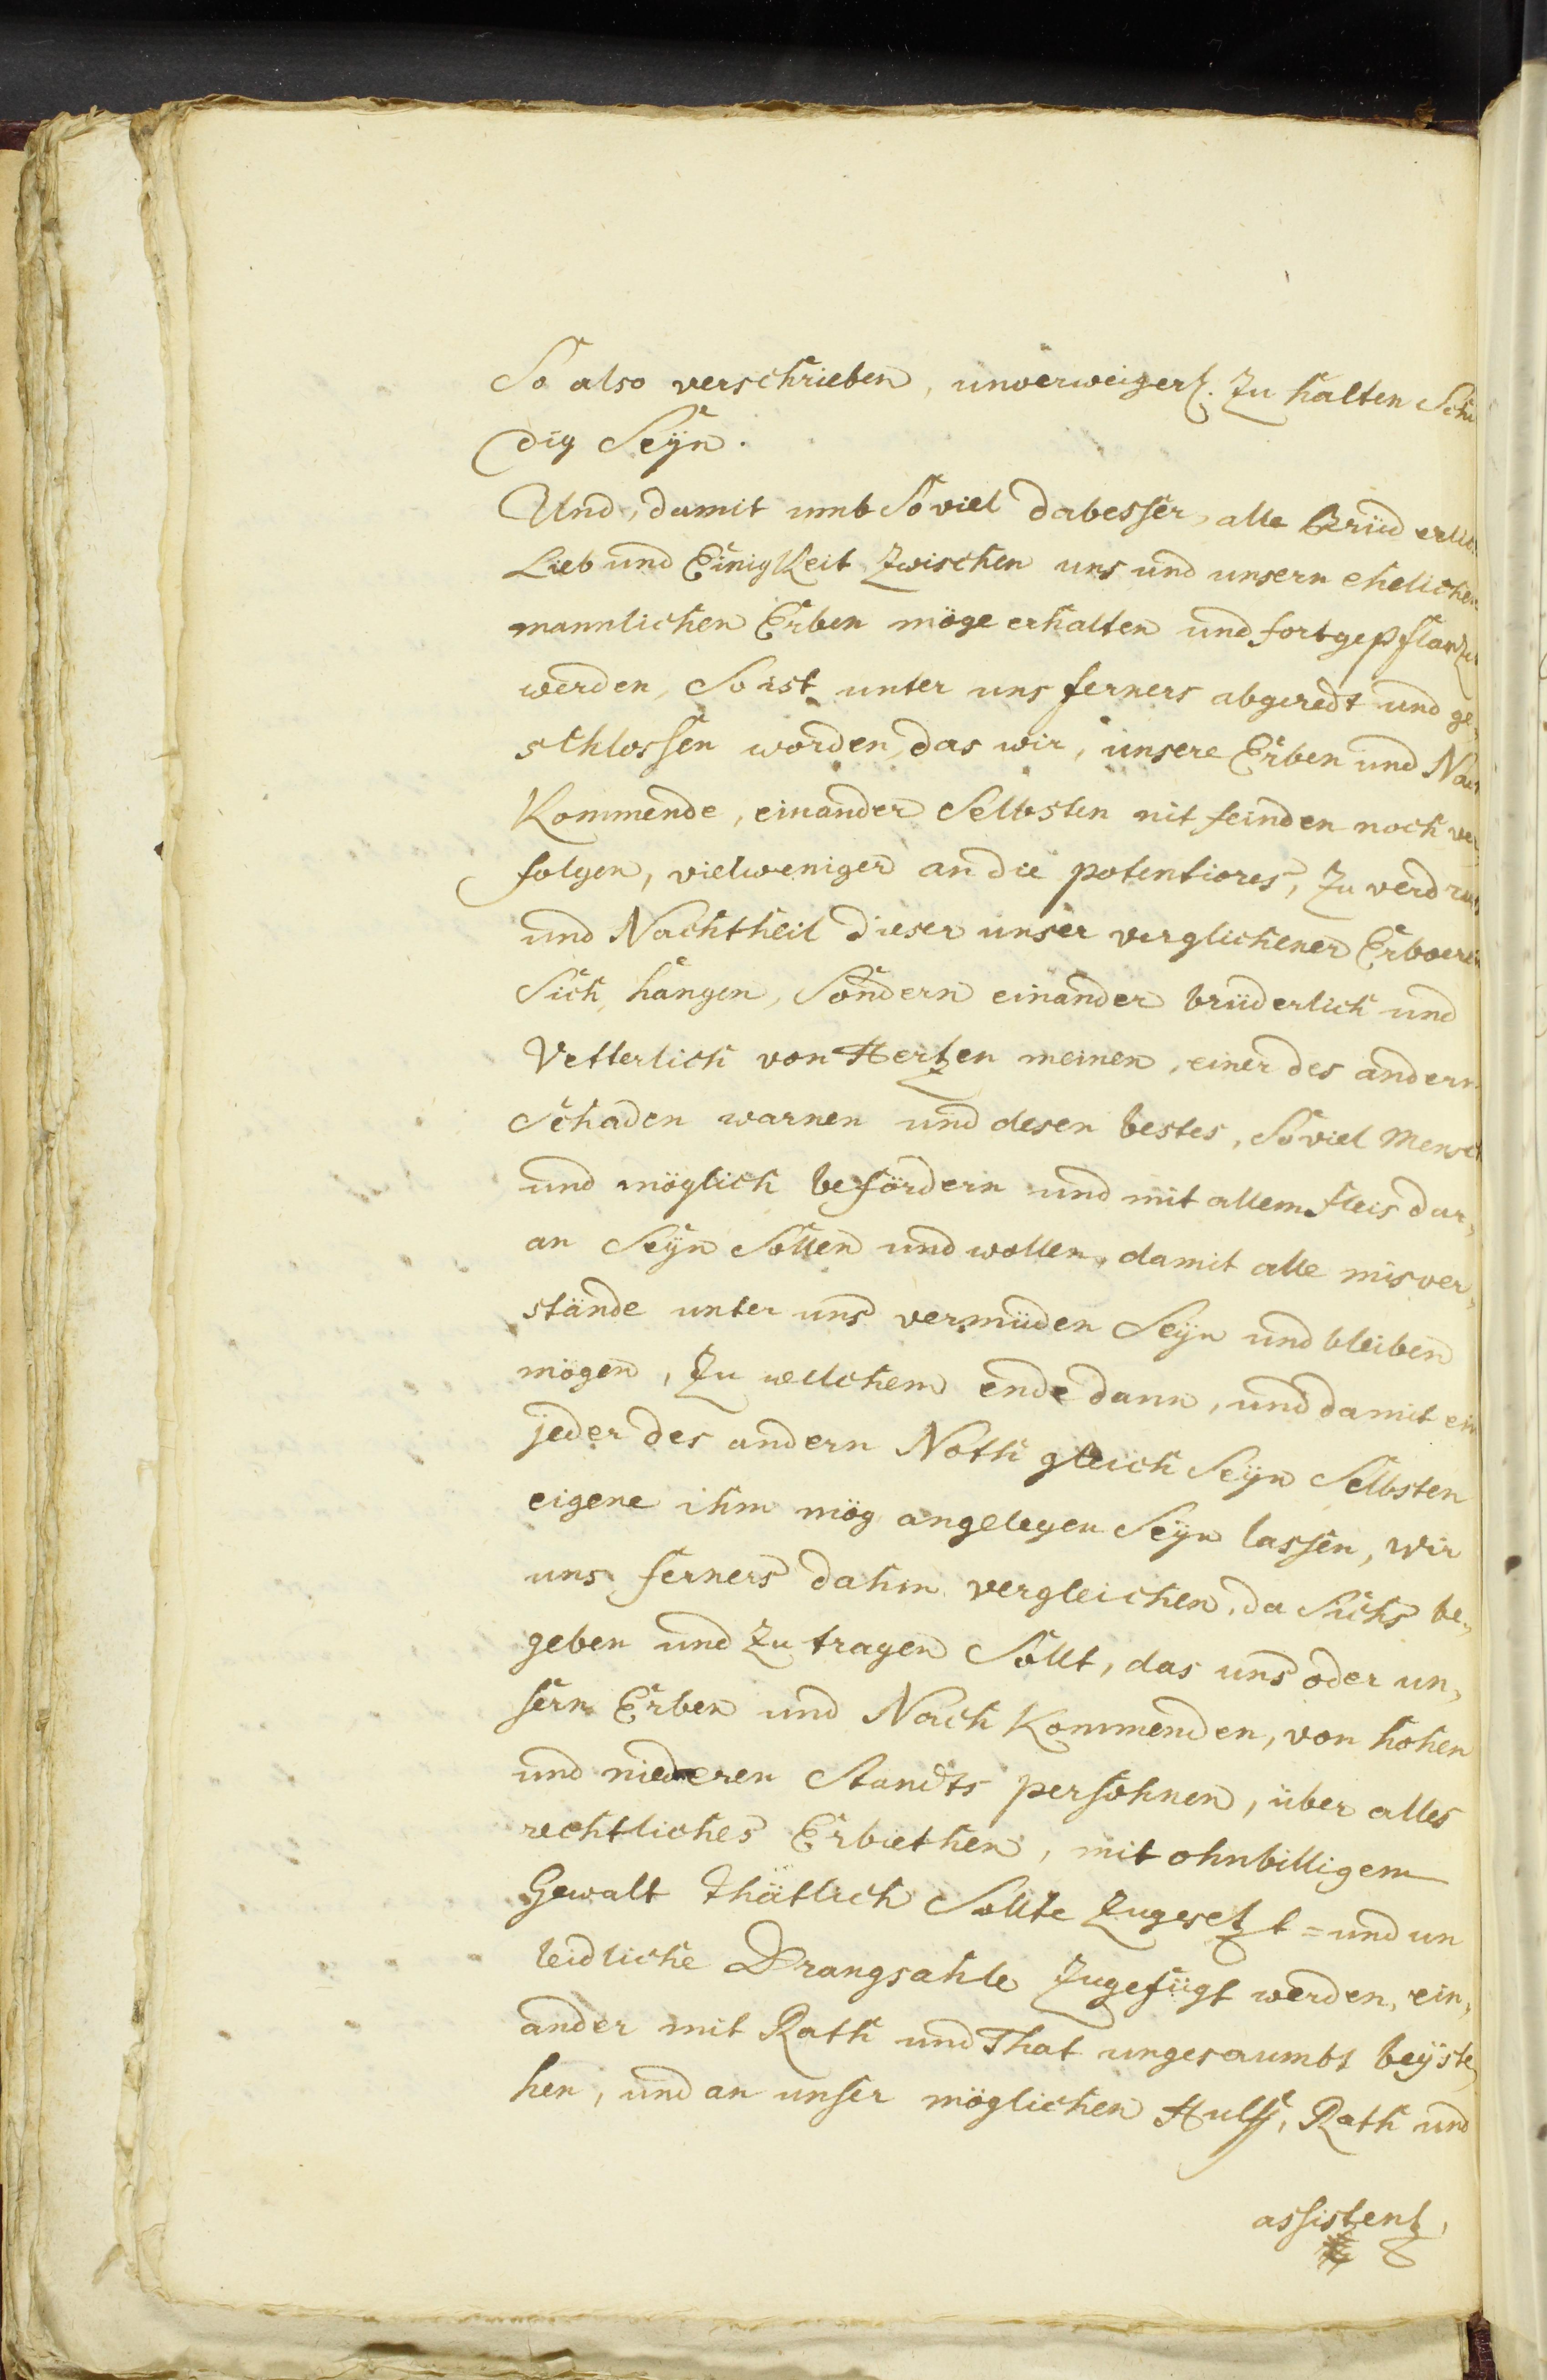 So also verschrieben, unverweigerl. Zu halten Schu
dig Seyn.
Und, damit umb So viel dabesser, alle Brüderlich
Lieb und Einigkeit Zwischen uns und unsern ehelichen
mannlichen Erben möge erhalten und fortgepflanzt
werden, So ist unter uns ferners abgeredt und ge„
schlossen worden, das wir, unsere Erben und Nach
Kommende, einander Selbsten nit feinden noch ver„
folgen, vielweniger an die potentiores, Zu verdrus
und Nachtheil dieser unser verglichener Erbverein
Sich hängen, Sondern einander brüderlich und
Vetterlich von Hertzen meinen, einer des andern
Schaden warnen und desen bestes, So viel Mensch
und möglich befördern und mit allem fleis dar„
an Seyn Sollen und wollen, damit alle misver„
stände unter uns vermüden Seyn und bleiben
mögen, Zu welchem ende dann, und damit ein
jeder des andern Noth gleich Seyn Selbsten
eigene ihm mög angelegen Seyn lassen, wir
uns ferners dahin vergleichen, da Sichs be„
geben und Zu tragen Sollt, das uns oder un„
sern Erben und Nach Kommenden, von hohen
und niederen Standts persohnen, über alles
rechtliches Erbiethen, mit ohnbilligem
Gewalt thätlich Sollte Zugesetzt = und un
leidliche Drangsahle Zugefügt werden, ein„
ander mit Rath und That ungesaumbt beyste„
hen, und an unser möglichen Hulff, Rath und
assistentz,